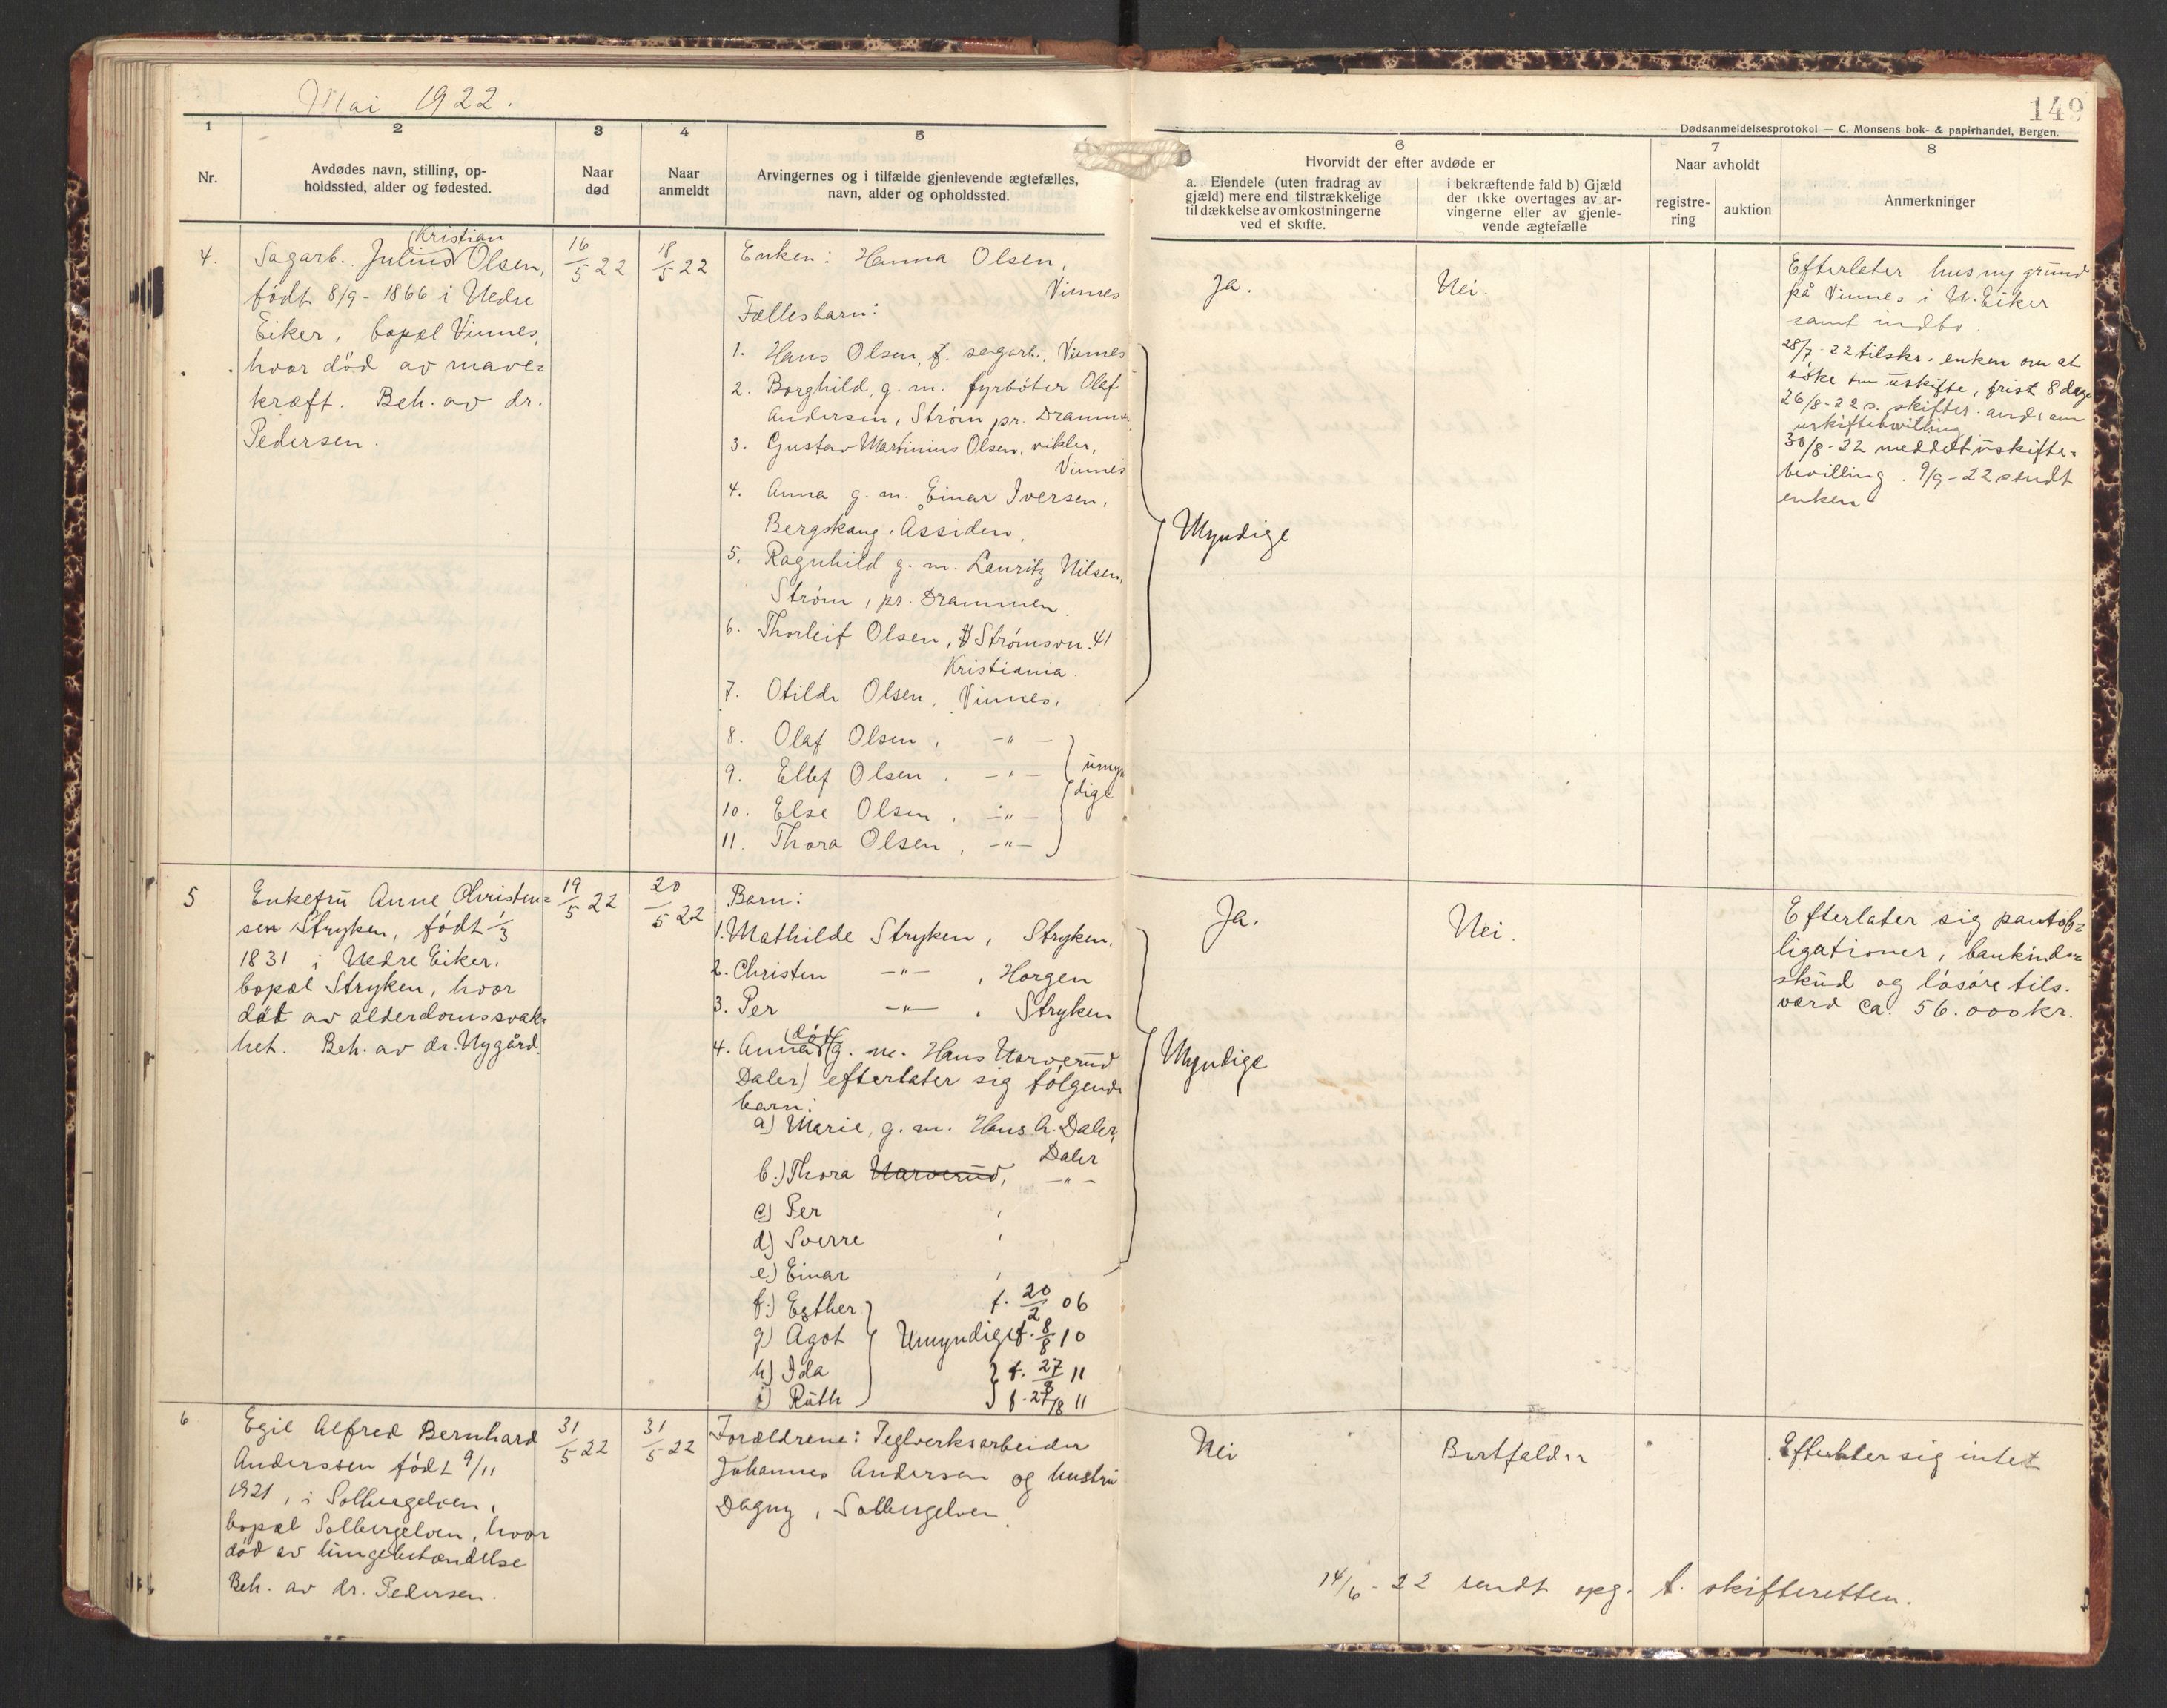 Mai 1922.
149
Dødsanmeldelsesprotokol — C. Monsens bok- & papirhandel, Bergen.
1
2
3
4
5
6
7
8
Nr.
Avdødes navn, stilling, op-
holdssted, alder og fødested.
Naar
død
Naar
anmeldt
Arvingernes og i tilfælde gjenlevende ægtefælles,
navn, alder og opholdssted.
Hvorvidt der efter avdøde er
a. Eiendele (uten fradrag av
gjæld) mere end tilstrækkelige
til dækkelse av omkostningerne
ved et skifte.
i bekræftende fald b) Gjæld
der ikke overtages av ar-
vingerne eller av gjenle-
vende ægtefælle
Naar avholdt
registre-
ring
auktion
Anmerkninger
4.
Kristian
Sagarb. Julius Olsen,
født 8/9 - 1866 i Nedre
Eiker, bopæl Vinnes,
hvor død av mave=
kræft. Beh. av dr.
Pedersen.
16/5 22
18/5 22
Enken: Hanna Olsen,
Vinnes
Fællesbarn:
1. Hans Olsen, sagarb., Vinnes
2. Borghild, g. m. fyrbøter Olaf
Andersen, Strøm pr. Drammen
3. Gustav Martinius Olsen, vikler,
Vinnes
4. Anna g. m. Einar Iversen,
Bergskaug, Åssiden,
5. Ragnhild g. m. Lauritz Nilsen,
Strøm, pr. Drammen.
6. Thorleif Olsen, Strømsvn. 41
Kristiania.
7. Otilde Olsen, Vinnes,
8. Olaf Olsen, -"-
9. Ellef Olsen, -"-
10. Else Olsen, -"-
11. Thora Olsen, -"-
umyn
dige
Myndige
Ja.
Nei.
Efterlater hus ny grund
på Vinnes i N. Eiker
samt indbo.
28/7-22 tilskr. enken om at
søke om uskifte, frist 8 dage
26/8-22 s. skifter. and. om
uskiftebevilling
30/8-22 meddelt uskifte=
bevilling. 9/9-22 sendt
enken
5
Enkefru Anne Christen=
sen Stryken, født 1/3
1831 i Nedre Eiker.
bopæl Stryken, hvor
død av alderdomssvak=
het. Beh. av dr. Nygård.
19/5 22
20/5 22
Barn:
1. Mathilde Stryken, Stryken.
2. Christen -"- , Horgen
3. Per -"- , Stryken
død
4. Anna (g. m. Hans Narverud
Daler) efterlater sig følgende
barn:
a) Marie, g. m. Hans A. Daler,
Daler
b.) Thora Narverud, -"-
c) Per ,
d) Sverre ,
e) Einar ,
f.) Esther f. 20/2 06
g) Agot Umyndige f. 8/8 10
h) Ida f. 27/8 11
i) Ruth f. 27/8 11
Myndige
Ja.
Nei.
Efterlater sig pantob=
ligationer, bankind=
skud og løsøre tils.
værd ca. 56.000 kr.
6
Egil Alfred Bernhard
Anderssen født 9/11
1921, i Solbergelven,
bopæl Solbergelven, hvor
død av lungebetændelse
Beh. av dr. Pedersen.
31/5 22
31/5 22
Forældrene: Teglverksarbeider
Johannes Andersen og hustru
Dagny, Solbergelven.
Nei
Bortfalder
Efterlater sig intet
14/6 - 22 sendt opg. t. skifteretten.